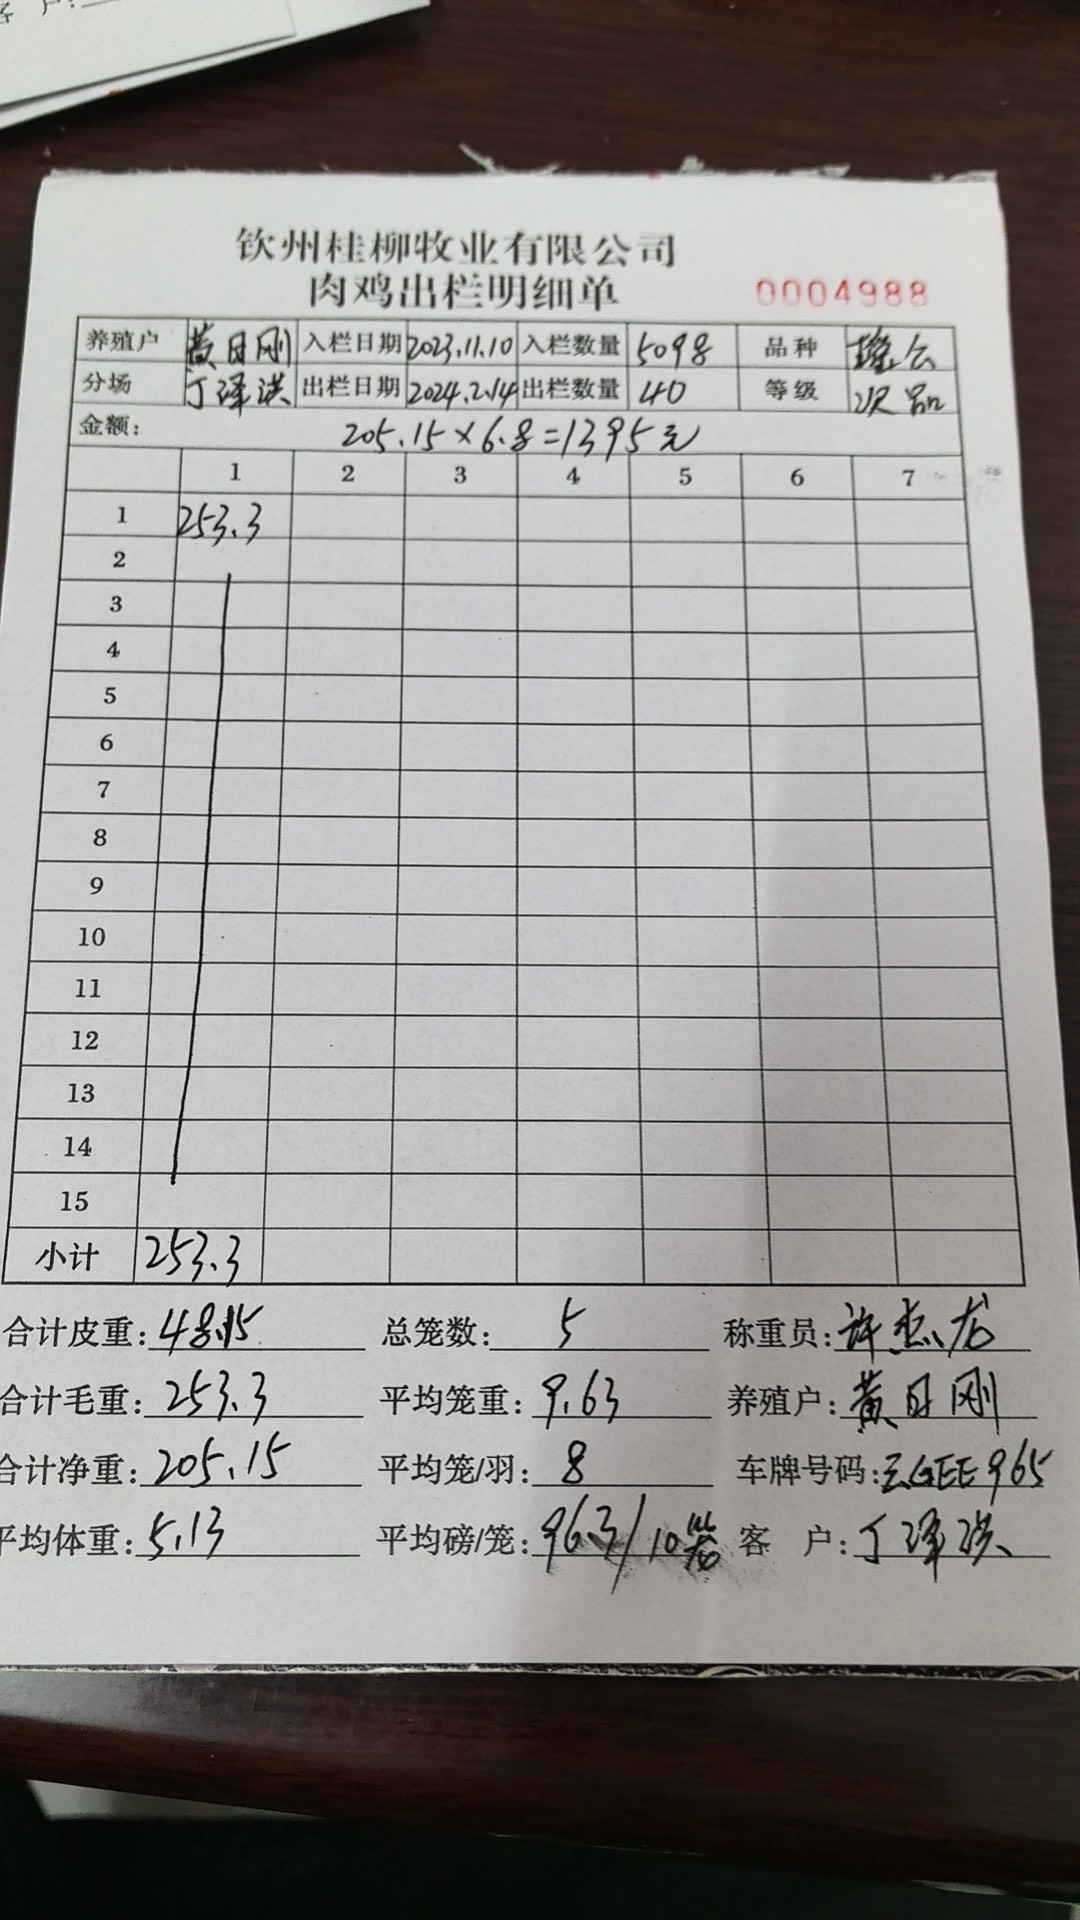 户:
钦州桂柳牧业有限公司
肉鸡出栏明细单 0004988
养殖户 黄日刚 入栏日期 2023.11.10 入栏数量 5098 品种
分场 丁泽洪 出栏日期 2024.2.14 出栏数量 40 等级 次品
金额: 205.15×6.8=1395元
1 2 3 4 5 6 7
1 253.3
2
3
4
5
6
7
8
9
10
11
12
13
14
15
小计 253.3
合计皮重: 48.15 总笼数: 5 称重员: 许杰龙
合计毛重: 253.3 平均笼重: 9.63 养殖户: 黄日刚
合计净重: 205.15 平均笼/羽: 8 车牌号码: GEE965
平均体重: 5.13 平均磅/笼: 96.3/10笼 客 户: 丁泽洪